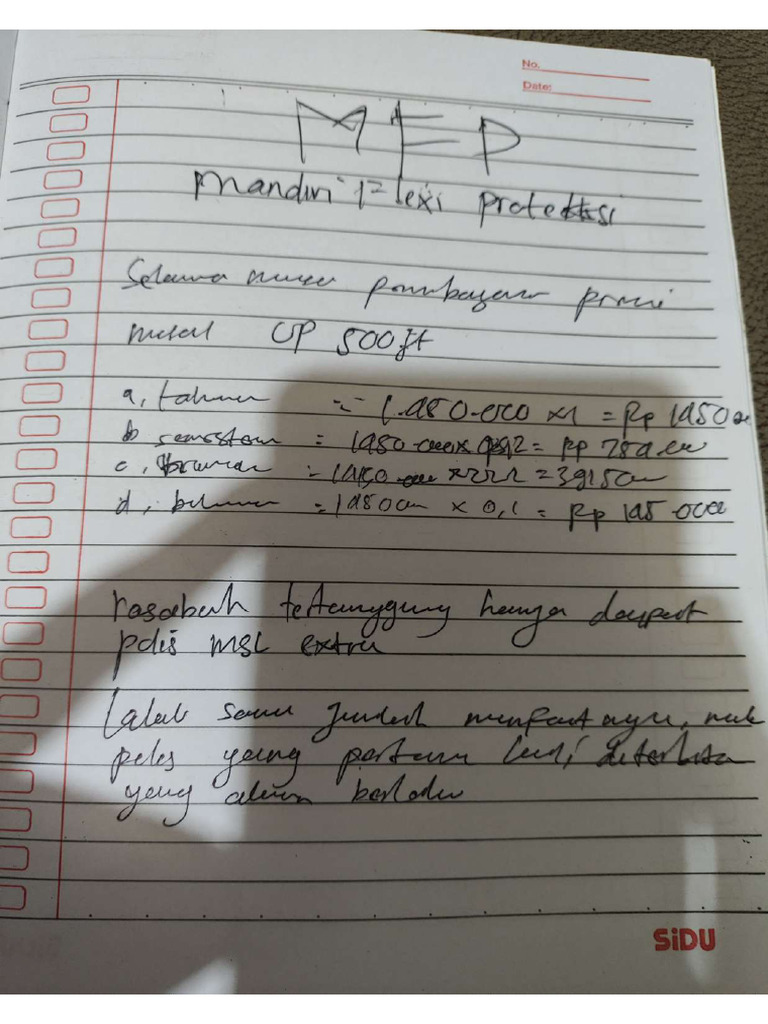 No.
Date:
MFP
Mandiri Flexi proteksi
Selama masa pembayaran premi
misal UP 500jt
a, tahunan = 1.950.000 x1 = Rp 1950
b semesteran = 1950 000x = Rp
c, = 1950 000 x
d, bulanan = 1950 000 x 0,1 = Rp 195 000
nasabah tertanggung hanya dapat
polis MSL extra
Calau sama jumlah manfaatnya, mak
polis yang pertama kali diterbitkan
yang akan berlaku
SiDU